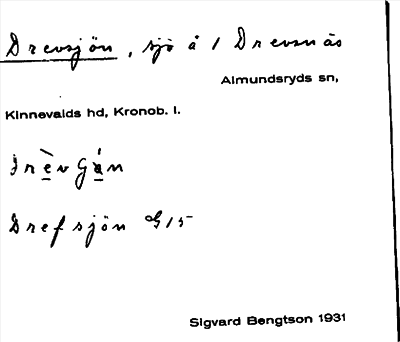 Drevsjön, sjö å / Drevsnäs
Almundsryds sn,
Kinnevalds hd, Kronob. l.
Drefsjön G15
Sigvard Bengtson 1931